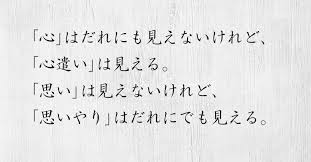 「心」はだれにも見えないけれど、
「心遣い」は見える。
「思い」は見えないけれど、
「思いやり」はだれにでも見える。